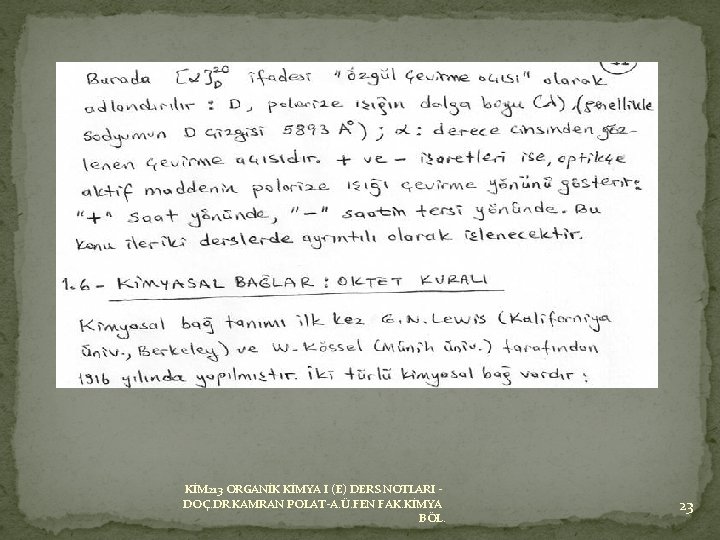 Burada [α]D20 ifadesi "özgül çevirme açısı" olarak
adlandırılır : D, polarize ışığın dalga boyu (λ), (genellikle
sodyumun D çizgisi 5893 A°) ; α : derece cinsinden göz-
lenen çevirme açısıdır. + ve - işaretleri ise, optikçe
aktif maddenin polarize ışığı çevirme yönünü gösterir:
"+" saat yönünde, "-" saatin tersi yönünde. Bu
konu ileriki derslerde ayrıntılı olarak işlenecektir.
1.6 - KİMYASAL BAĞLAR : OKTET KURALI
Kimyasal bağ tanımı ilk kez G.N. Lewis (Kaliforniya
üniv., Berkeley) ve W. Kössel (Münih üniv.) tarafından
1916 yılında yapılmıştır. İki türlü kimyasal bağ vardır :
KİM213 ORGANİK KİMYA I (E) DERS NOTLARI -
DOÇ.DR.KAMRAN POLAT-A.Ü.FEN FAK.KİMYA
BÖL.
23